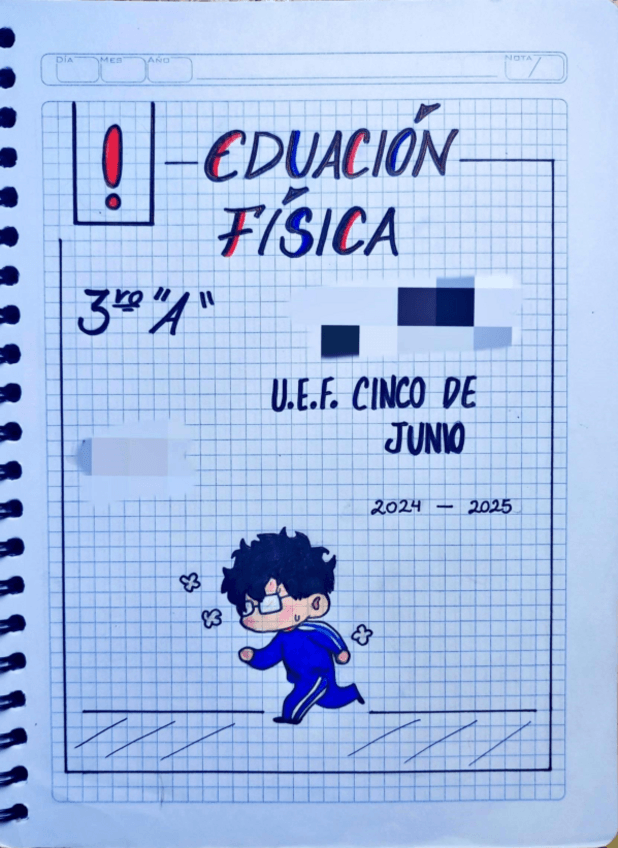 DÍA MES AÑO NOTA
EDUACIÓN
FÍSICA
3ro "A"
U.E.F. CINCO DE
JUNIO
2024 — 2025